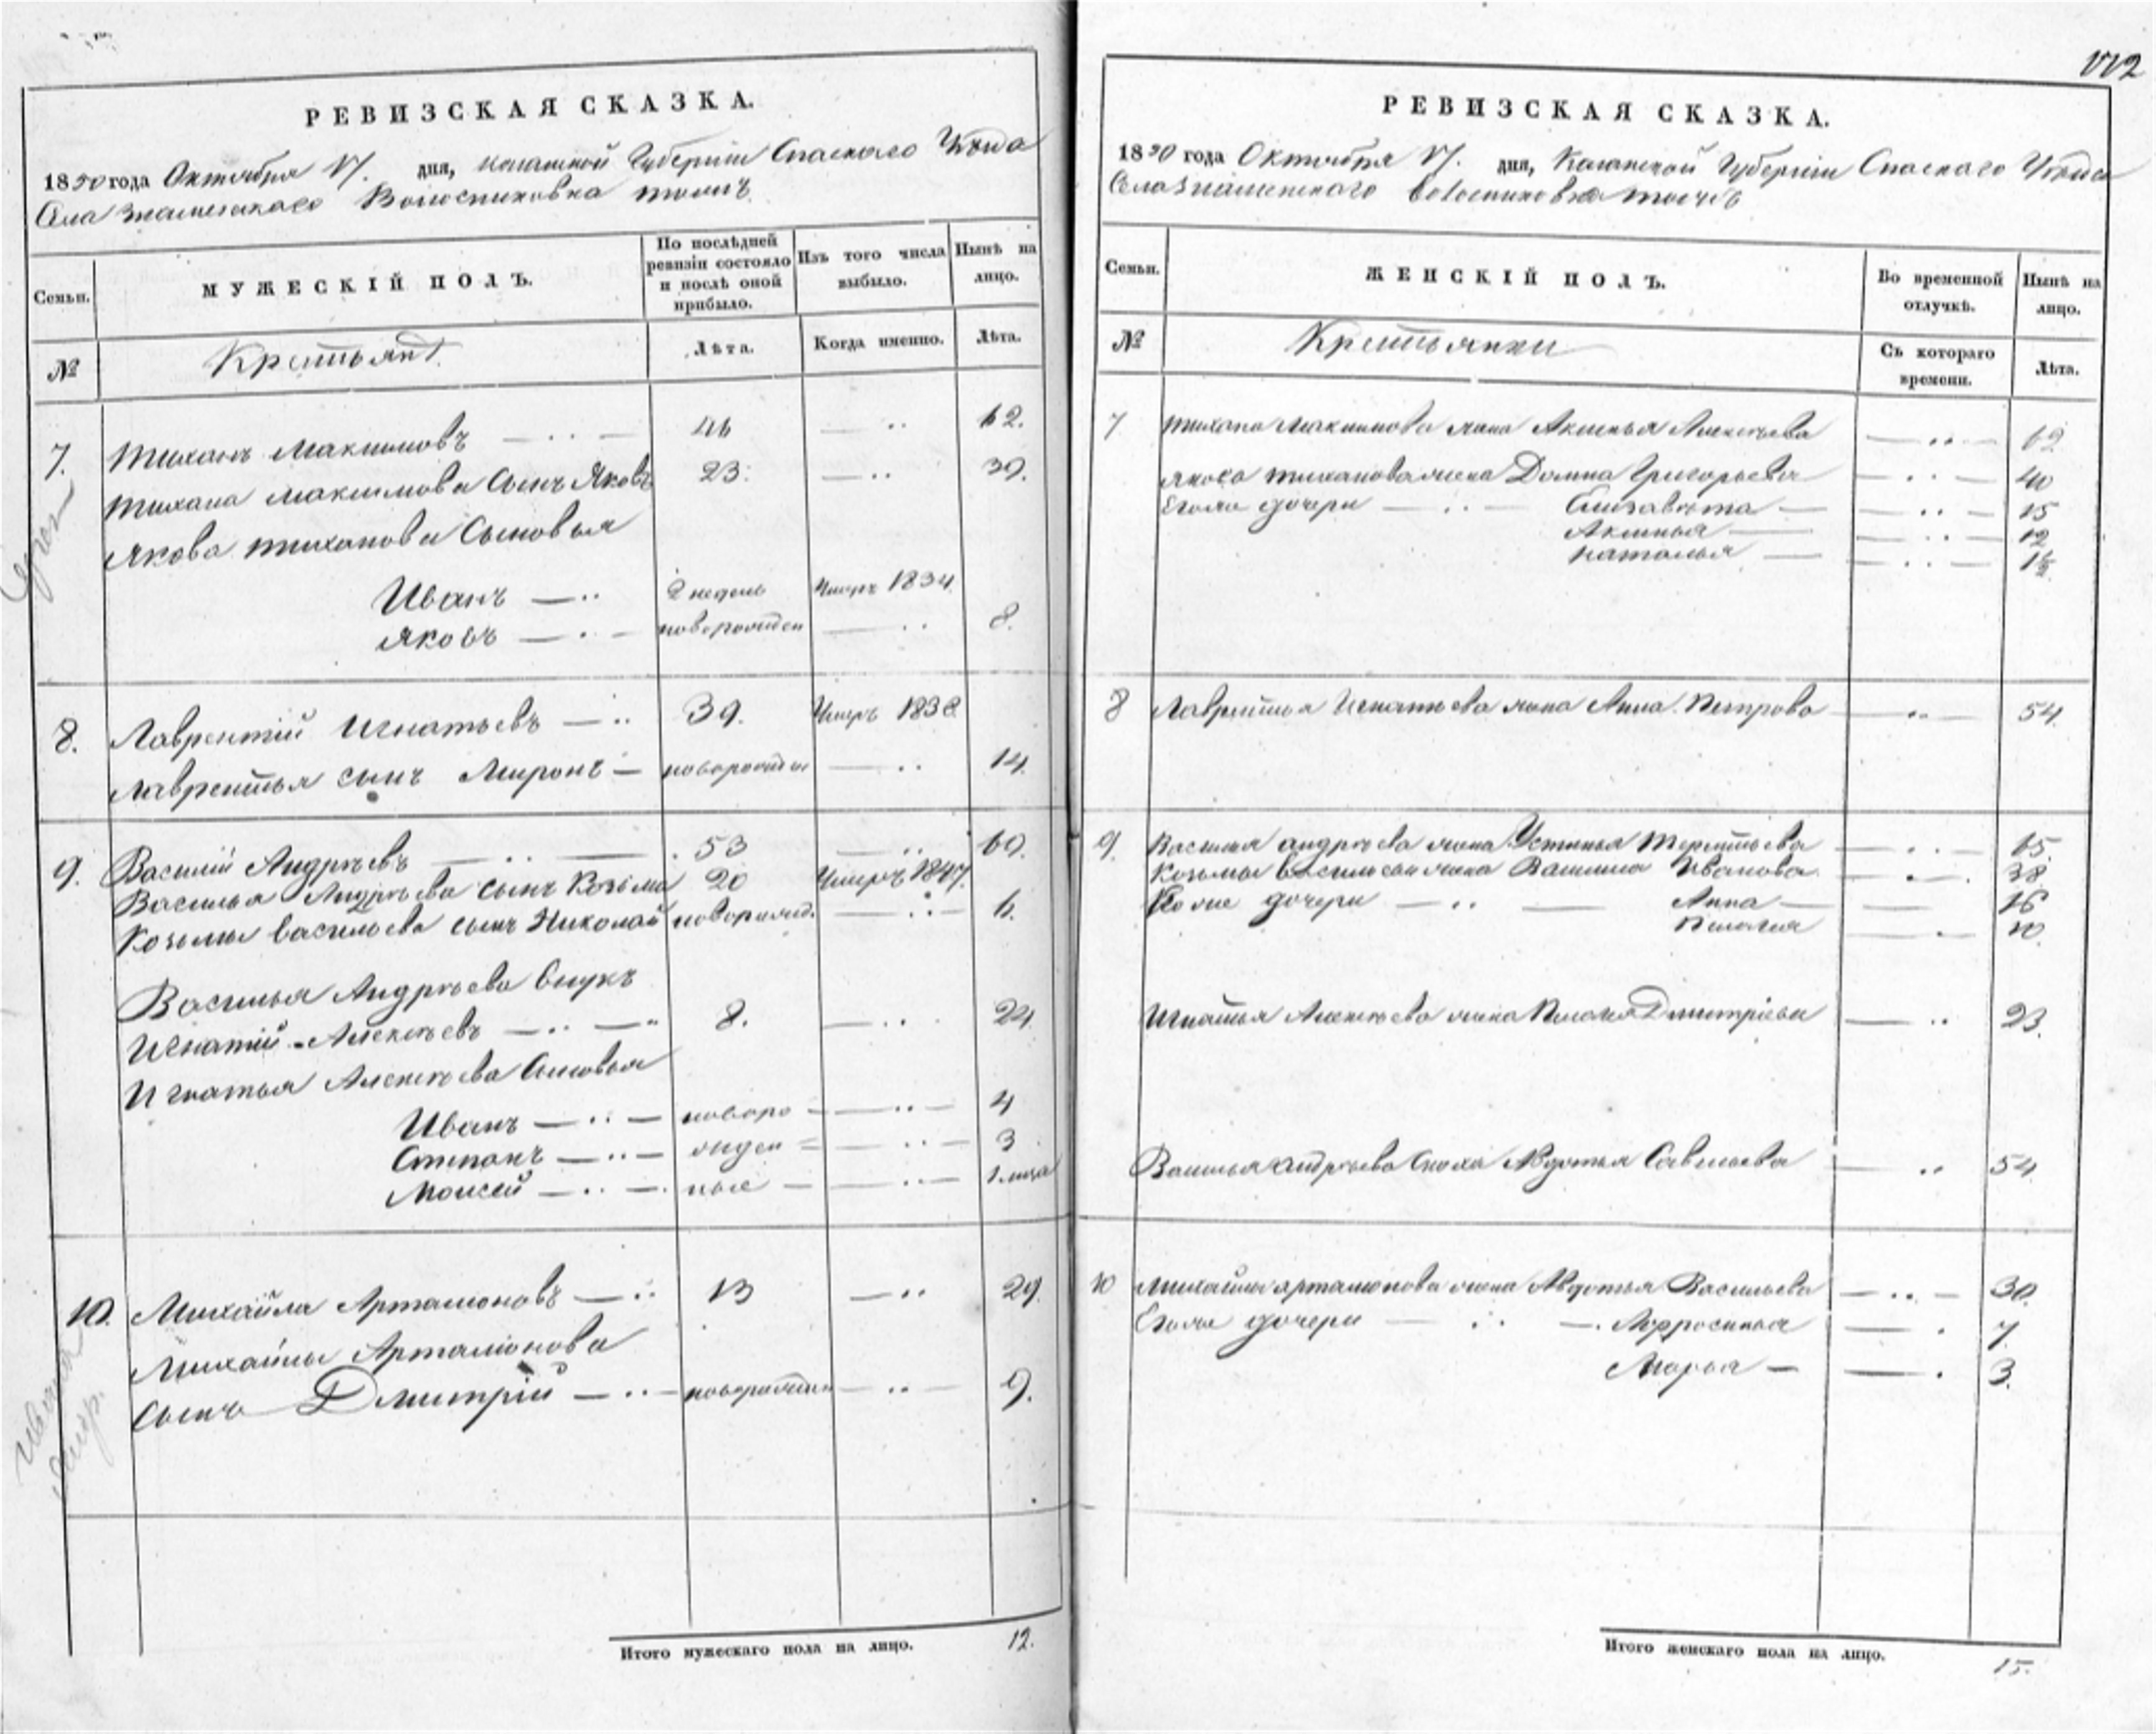 РЕВИЗСКАЯ СКАЗКА.
1850 года Октября дня, Казанской Губерніи Спаскаго Уѣзда
Села Знаменскаго Волостиковка тожъ
Семьи.
МУЖЕСКІЙ ПОЛЪ.
По послѣдней ревизіи состояло и послѣ оной прибыло.
Изъ того числа выбыло.
Нынѣ на лицо.
№
Крестьянѣ
Лѣта.
Когда именно.
Лѣта.
7. Тиханъ Максимовъ — 46 — 62.
Тихана Максимова Сынъ Яковъ 23. — 39.
Якова Тиханова Сыновья
Иванъ — 2 недель Умеръ 1834
Яковъ — новорожден — 8.
8. Лаврентій Игнатьевъ — 39. Умеръ 1838
Лаврентья сынъ Миронъ — новорожден — 14.
9. Василій Андрѣевъ — 53 — 69.
Василья Андрѣева сынъ Козьма 20 Умеръ 1847.
Козьмы Васильева сынъ Николай новорожд. — 6.
Василья Андрѣева Внукъ
Игнатій Алексѣевъ — 8. — 24.
Игнатья Алексѣева Сыновья
Иванъ — новоро — 4
Степанъ — жден — 3
Моисей — ные —
10. Михайла Артамоновъ — 13 — 29.
Михайлы Артамонова
Сынъ Дмитрій — новорожден — 9.
Итого мужескаго пола на лицо. 12.
РЕВИЗСКАЯ СКАЗКА.
1850 года Октября дня, Казанской Губерніи Спаскаго Уѣзда
Села Знаменскаго Волостиковка тожъ
Семьи.
ЖЕНСКІЙ ПОЛЪ.
Во временной отлучкѣ.
Нынѣ на лицо.
№
Крестьянки
Съ котораго времени.
Лѣта.
7 Тихана Максимова жена Аксинья Алексѣева — 62
Якова Тиханова жена Домна Григорьева — 40
Егоже дочери — Елизавѣта — 15
Аксинья — 12
Наталья — 1½
8 Лаврентья Игнатьева жена Анна Петрова — 54.
9. Василья Андрѣева жена Устинья Терентьева — 65.
Козьмы Васильева жена Васиlиса Иванова — 38
Егоже дочери — Анна — 16
Пелагея — 10.
Игнатья Алексѣева жена Пелагея Дмитріева — 23.
Василья Андрѣева Сноха Авдотья Савельева — 54
10 Михайлы Артамонова жена Авдотья Васильева — 30.
Егоже дочери — Афросинья — 7.
Марья — 3.
Итого женскаго пола на лицо. 15.